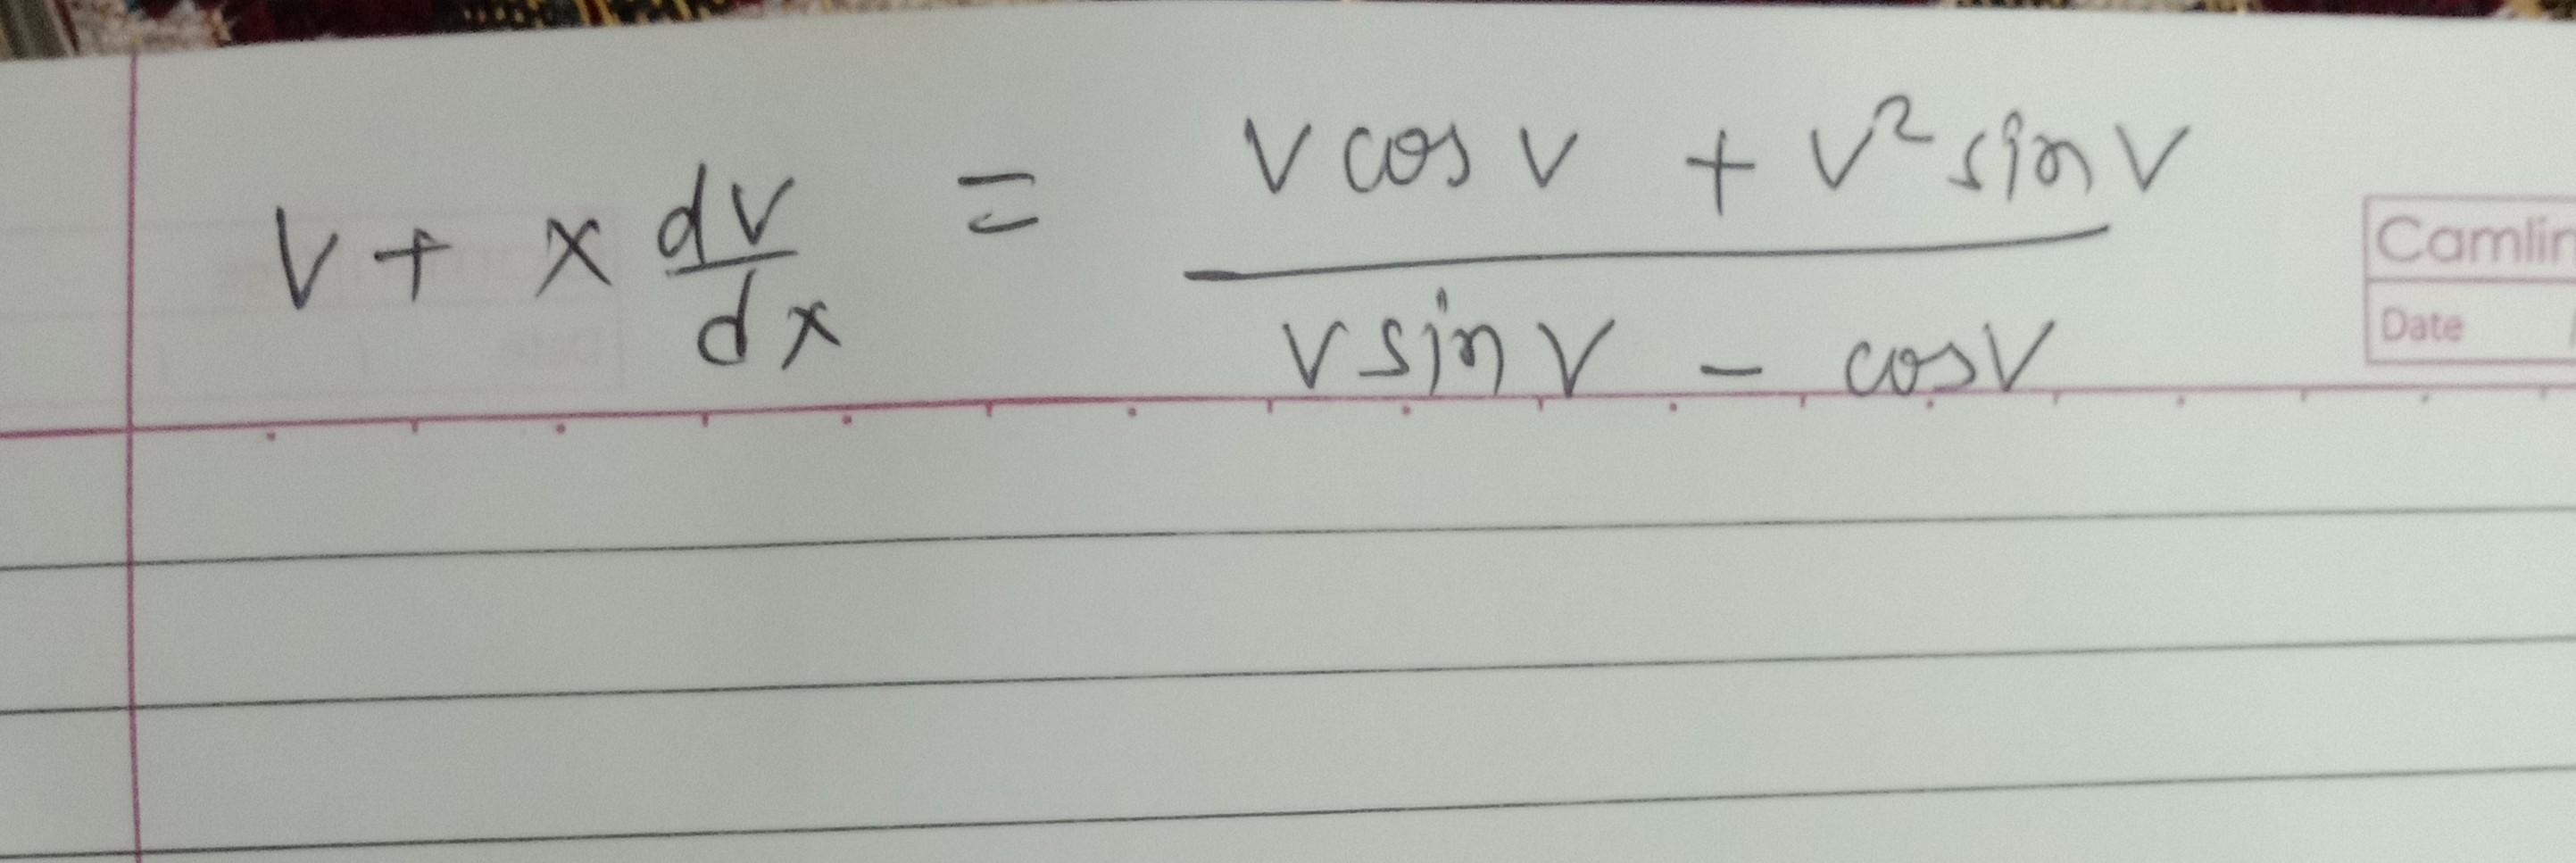 v + x dv/dx = (v cos v + v² sin v)/(v sin v - cos v)
Camlin
Date